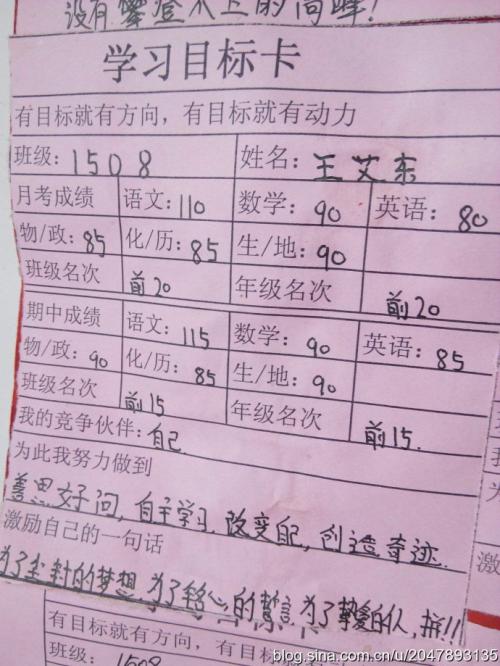 没有攀登不上的高峰!
学习目标卡
有目标就有方向，有目标就有动力
班级: 1508 姓名: 王艾东
月考成绩 语文: 110 数学: 90 英语: 80
物/政: 85 化/历: 85 生/地: 90
班级名次 前20 年级名次 前20
期中成绩 语文: 115 数学: 90 英语: 85
物/政: 90 化/历: 85 生/地: 90
班级名次 前15 年级名次 前15.
我的竞争伙伴: 自己
为此我努力做到
善思好问, 自主学习 改变自己, 创造奇迹.
激励自己的一句话
为了尘封的梦想 为了铭心的誓言 为了挚爱的人, 拼!!!
有目标就有方向，有目标
班级: 1508
我
为
激
blog.sina.com.cn/u/2047893135